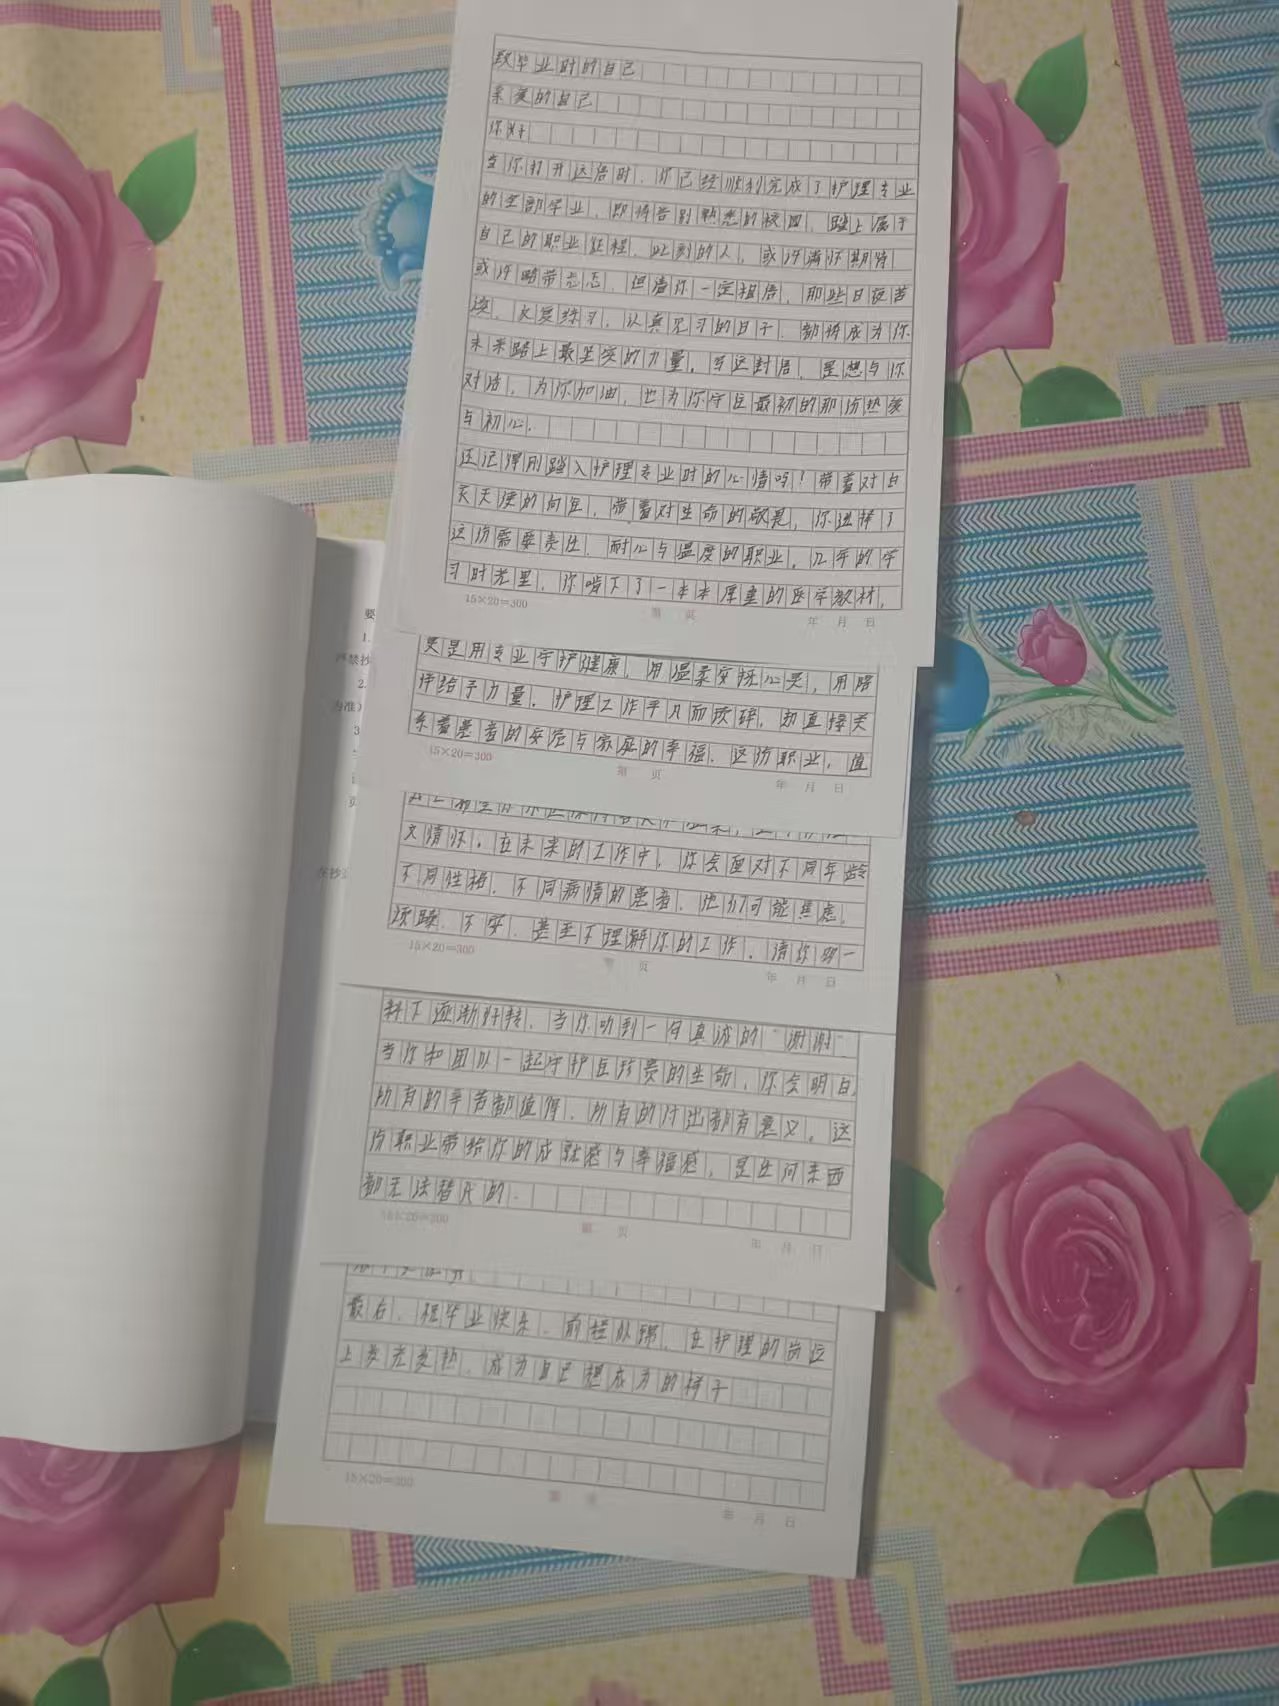 致毕业时的自己
亲爱的自己
你好
当你打开这信时,你已经顺利完成了护理专业
的全部学业,即将告别熟悉的校园,踏上属于
自己的职业征程,此刻的人,或许满怀期待
或许略带忐忑,但请你一定相信,那些日夜苦
读、反复练习、认真见习的日子,都将成为你
未来路上最坚实的力量。写这封信,是想与你
对话,为你加油,也为你守住最初的那份热爱
与初心.
还记得刚踏入护理专业时的心情吗?带着对白
衣天使的向往,带着对生命的敬畏,你选择了
这份需要责任、耐心与温度的职业,几年的学
习时光里,你啃下了一本本厚重的医学教材,
15×20=300 第 页 年 月 日
更是用专业守护健康,用温柔安抚心灵,用陪
伴给予力量。护理工作平凡而琐碎,却直接关
系着患者的安危与家庭的幸福、这份职业,值
15×20=300 第 页 年 月 日
文情怀。在未来的工作中,你会面对不同年龄
不同性格、不同病情的患者,他们可能焦虑、
烦躁、不安、甚至不理解你的工作,请你
15×20=300 页 年 月 日
料下逐渐好转,当你听到一句真诚的“谢谢”
当你和团队一起守护住珍贵的生命,你会明白,
所有的辛苦都值得,所有的付出都有意义。这
份职业带给你的成就感与幸福感,是任何东西
都无法替代的.
15×20=300 页 年 月 日
最后,祝毕业快乐、前程似锦,在护理的岗位
上发光发热,成为自己想成为的样子
15×20=300 年 月 日
要
1.
严禁抄
2.
3
页